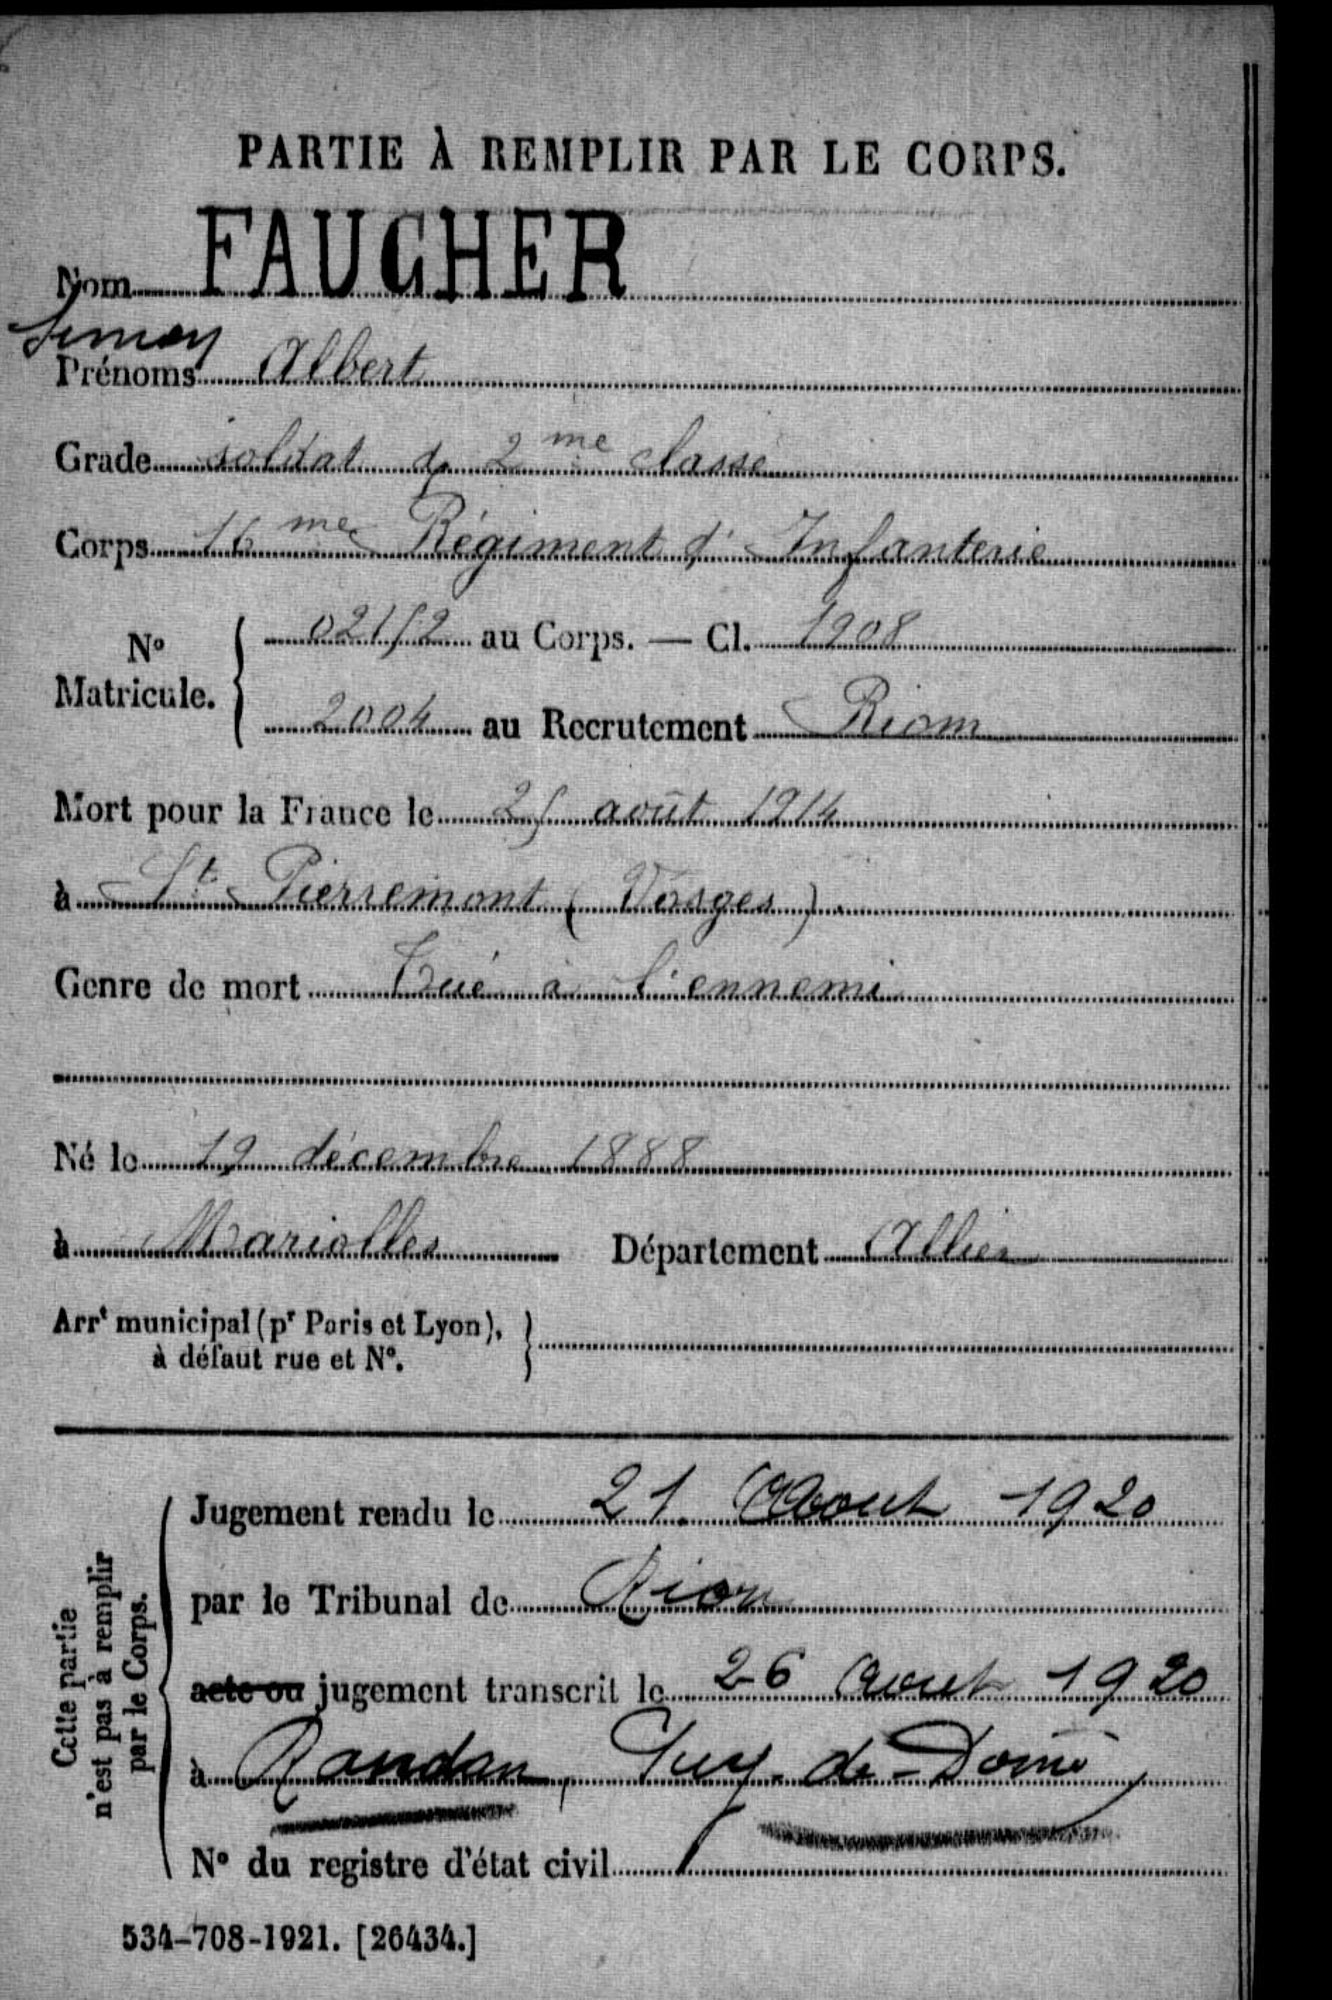 PARTIE À REMPLIR PAR LE CORPS.
Nom FAUCHER
Simon
Prénoms Albert
Grade soldat de 2me classe
Corps 16me Régiment d'Infanterie
No Matricule. 02152 au Corps. — Cl. 1908
2004 au Recrutement Riom
Mort pour la France le 25 août 1914
à St Pierremont (Vosges).
Genre de mort Tué à l'ennemi
Né le 19 décembre 1888
à Mariolles Département Allier
Arrt municipal (pr Paris et Lyon),
à défaut rue et No.
Cette partie
n'est pas à remplir
par le Corps.
Jugement rendu le 21. Aout 1920
par le Tribunal de Riom
acte ou jugement transcrit le 26 Aout 1920
à Randan, Puy-de-Dôme
No du registre d'état civil
534-708-1921. [26434.]